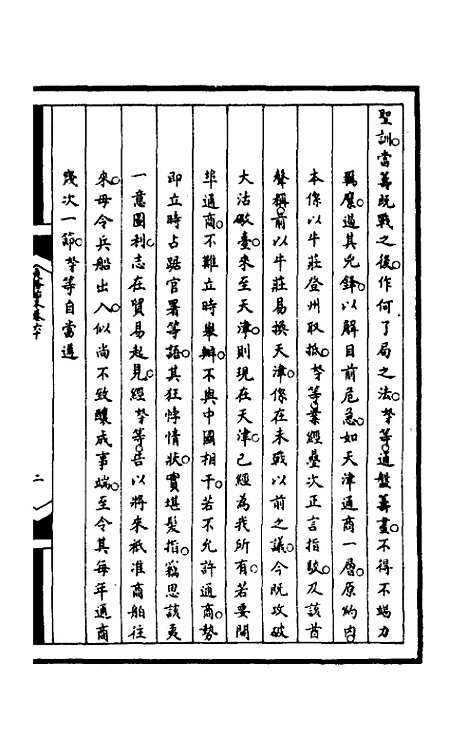 聖訓當籌既戰之後作何了局之法奴才等通盤籌畫不得不竭力
羈縻過其兇鋒以解目前危急如天津通商一層原約內
本係以牛莊登州取抵奴才等業經疊次正言指駁乃該酋
聲稱前以牛莊易換天津係在未戰以前之議今既攻破
大沽礮臺來至天津則現在天津已經為我所有若要開
埠通商不難立時舉辦不與中國相干若不允許通商勢
即立時占踞官署等語其狂悖情狀實堪髮指竊思該夷
一意圖利志在貿易起見經奴才等告以將來祇准商舶往
來毋令兵船出入似尚不致釀成事端至令其每年通商
幾次一節奴才等自當遵
二